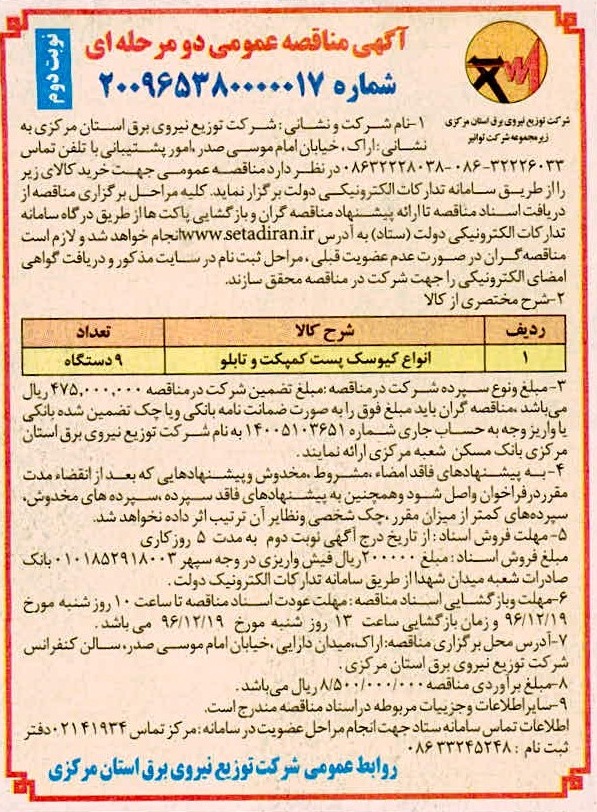 آگهی مناقصه عمومی دو مرحله ای
نوبت دوم
شماره ۲۰۰۹۶۵۳۸۰۰۰۰۰۱۷
شرکت توزیع نیروی برق استان مرکزی
زیرمجموعه شرکت توانیر
۱-نام شرکت و نشانی : شرکت توزیع نیروی برق استان مرکزی به
نشانی : اراک ، خیابان امام موسی صدر، امور پشتیبانی با تلفن تماس
۰۸۶-۳۲۲۲۶۰۳۳-۰۸۶۳۲۲۲۸۰۳۸ در نظر دارد مناقصه عمومی جهت خرید کالای زیر
را از طریق سامانه تدارکات الکترونیکی دولت برگزار نماید. کلیه مراحل برگزاری مناقصه از
دریافت اسناد مناقصه تا ارائه پیشنهاد مناقصه گران و بازگشایی پاکت ها از طریق درگاه سامانه
تدارکات الکترونیکی دولت (ستاد) به آدرس www.setadiran.ir انجام خواهد شد و لازم است
مناقصه گران در صورت عدم عضویت قبلی ، مراحل ثبت نام در سایت مذکور و دریافت گواهی
امضای الکترونیکی را جهت شرکت در مناقصه محقق سازند.
۲-شرح مختصری از کالا
ردیف شرح کالا تعداد
۱ انواع کیوسک پست کمپکت و تابلو ۹ دستگاه
۳-مبلغ ونوع سپرده شرکت در مناقصه :مبلغ تضمین شرکت در مناقصه ۴۷۵,۰۰۰,۰۰۰ ریال
می باشد ،مناقصه گران باید مبلغ فوق را به صورت ضمانت نامه بانکی ویا چک تضمین شده بانکی
یا واریز وجه به حساب جاری شماره ۱۴۰۰۵۱۰۳۶۵۱ به نام شرکت توزیع نیروی برق استان
مرکزی بانک مسکن شعبه مرکزی ارائه نمایند.
۴-به پیشنهادهای فاقد امضاء ،مشروط ،مخدوش و پیشنهادهایی که بعد از انقضاء مدت
مقرر در فراخوان واصل شود وهمچنین به پیشنهادهای فاقد سپرده ،سپرده های مخدوش،
سپرده‌های کمتر از میزان مقرر ،چک شخصی ونظایر آن ترتیب اثر داده نخواهد شد.
۵-مهلت فروش اسناد : از تاریخ درج آگهی نوبت دوم به مدت ۵ روز کاری
مبلغ فروش اسناد : مبلغ ۲۰۰۰۰۰ ریال فیش واریزی در وجه سپهر ۰۱۰۱۸۵۲۹۱۸۰۰۳ بانک
صادرات شعبه میدان شهدا از طریق سامانه تدارکات الکترونیک دولت .
۶-مهلت وبازگشایی اسناد مناقصه : مهلت عودت اسناد مناقصه تا ساعت ۱۰ روز شنبه مورخ
۹۶/۱۲/۱۹ و زمان بازگشایی ساعت ۱۳ روز شنبه مورخ ۹۶/۱۲/۱۹ می باشد .
۷-آدرس محل برگزاری مناقصه: اراک،میدان دارایی ،خیابان امام موسی صدر، سالن کنفرانس
شرکت توزیع نیروی برق استان مرکزی .
۸-مبلغ برآوردی مناقصه ۸/۵۰۰/۰۰۰/۰۰۰ ریال می باشد.
۹-سایر اطلاعات وجزییات مربوطه در اسناد مناقصه مندرج است.
اطلاعات تماس سامانه ستاد جهت انجام مراحل عضویت در سامانه : مرکز تماس ۰۲۱۴۱۹۳۴ دفتر
ثبت نام : ۰۸۶۳۳۲۴۵۲۴۸
روابط عمومی شرکت توزیع نیروی برق استان مرکزی